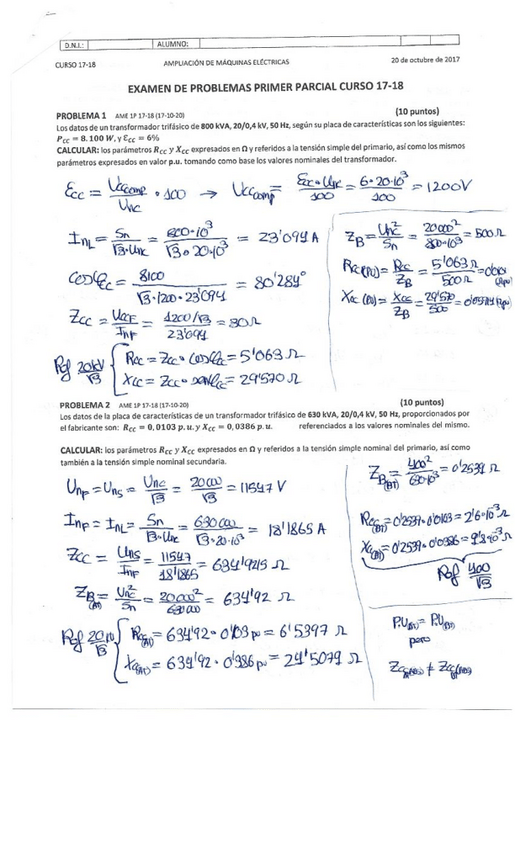 D.N.I.: ALUMNO:
CURSO 17-18 AMPLIACIÓN DE MÁQUINAS ELÉCTRICAS 20 de octubre de 2017
EXAMEN DE PROBLEMAS PRIMER PARCIAL CURSO 17-18
PROBLEMA 1 AME 1P 17-18 (17-10-20) (10 puntos)
Los datos de un transformador trifásico de 800 kVA, 20/0,4 kV, 50 Hz, según su placa de características son los siguientes:
Pcc = 8.100 W, y Ecc = 6%
CALCULAR: los parámetros Rcc y Xcc expresados en Ω y referidos a la tensión simple del primario, así como los mismos
parámetros expresados en valor p.u. tomando como base los valores nominales del transformador.
Ecc = Uccomp / Unc · 100 → Uccomp = Ecc · Unc / 100 = 6 · 20·10³ / 100 = 1200V
InL = Sn / √3·Unc = 800·10³ / √3·20·10³ = 23'094 A
cosφcc = 8100 / √3·1200·23'094 = 80'284°
Zcc = Uccf / Inf = 1200/√3 / 23'094 = 30Ω
Ref 20kV / √3
Rcc = Zcc · cosφcc = 5'063 Ω
Xcc = Zcc · senφcc = 29'570 Ω
ZB = Unc² / Sn = 20000² / 800·10³ = 500Ω
Rcc (PU) = Rcc / ZB = 5'063Ω / 500Ω
Xcc (PU) = Xcc / ZB = 29'570 / 500 = 0'0591
PROBLEMA 2 AME 1P 17-18 (17-10-20) (10 puntos)
Los datos de la placa de características de un transformador trifásico de 630 kVA, 20/0,4 kV, 50 Hz, proporcionados por
el fabricante son: Rcc = 0,0103 p.u. y Xcc = 0,0386 p.u. referenciados a los valores nominales del mismo.
CALCULAR: los parámetros Rcc y Xcc expresados en Ω y referidos a la tensión simple nominal del primario, así como
también a la tensión simple nominal secundaria.
Unp = Uns = Unc / √3 = 20000 / √3 = 11547 V
Inp = InL = Sn / √3·Unc = 630000 / √3·20·10³ = 18'1865 A
Zcc = Uns / Inp = 11547 / 18'1865 = 634'9215 Ω
ZB(AT) = Unc² / Sn = 20000² / 630000 = 634'92 Ω
Ref 20kV / √3
Rcc(AT) = 634'92 · 0'0103 pu = 6'5397 Ω
Xcc(AT) = 634'92 · 0'0386 pu = 24'5079 Ω
ZB(BT) = 400² / 630·10³ = 0'2539 Ω
Rcc(BT) = 0'2539·0'0103 = 2'6·10⁻³ Ω
Xcc(BT) = 0'2539·0'0386 = 9'8·10⁻³ Ω
Ref 400 / √3
P.U(AT) = P.U(BT)
pero
Zcc(AT) ≠ Zcc(BT)